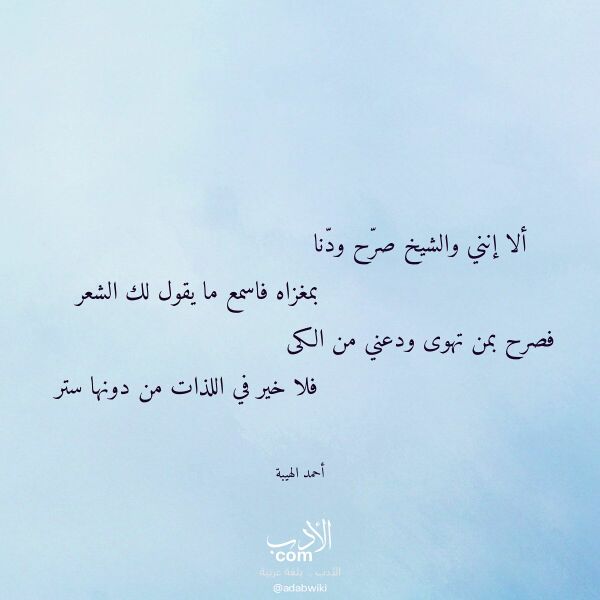 ألا إنني والشيخ صرّح ودّنا
بمغزاه فاسمع ما يقول لك الشعر
فصرح بمن تهوى ودعني من الكى
فلا خير في اللذات من دونها ستر
أحمد الهيبة
الأدب
com
الأدب .. بلغة عربية
@adabwiki